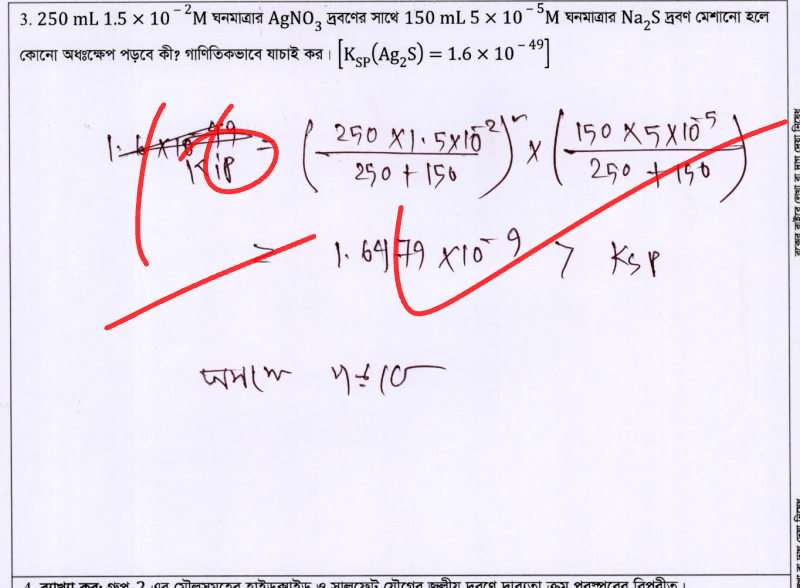 3. 250 mL 1.5 × 10⁻²M ঘনমাত্রার AgNO₃ দ্রবণের সাথে 150 mL 5 × 10⁻⁵M ঘনমাত্রার Na₂S দ্রবণ মেশানো হলে
কোনো অধঃক্ষেপ পড়বে কী? গাণিতিকভাবে যাচাই কর। [K_SP(Ag₂S) = 1.6 × 10⁻⁴⁹]
Kip = (250 × 1.5×10⁻² / 250 + 150)² × (150 × 5×10⁻⁵ / 250 + 150)
= 1.6479 × 10⁻⁹ > Ksp
4. ব্যাখ্যা কর: গ্রুপ 2 এর মৌলসমূহের হাইড্রক্সাইড ও সালফেট যৌগের জলীয় দ্রবণে দ্রাব্যতা ক্রম পরস্পরের বিপরীত।